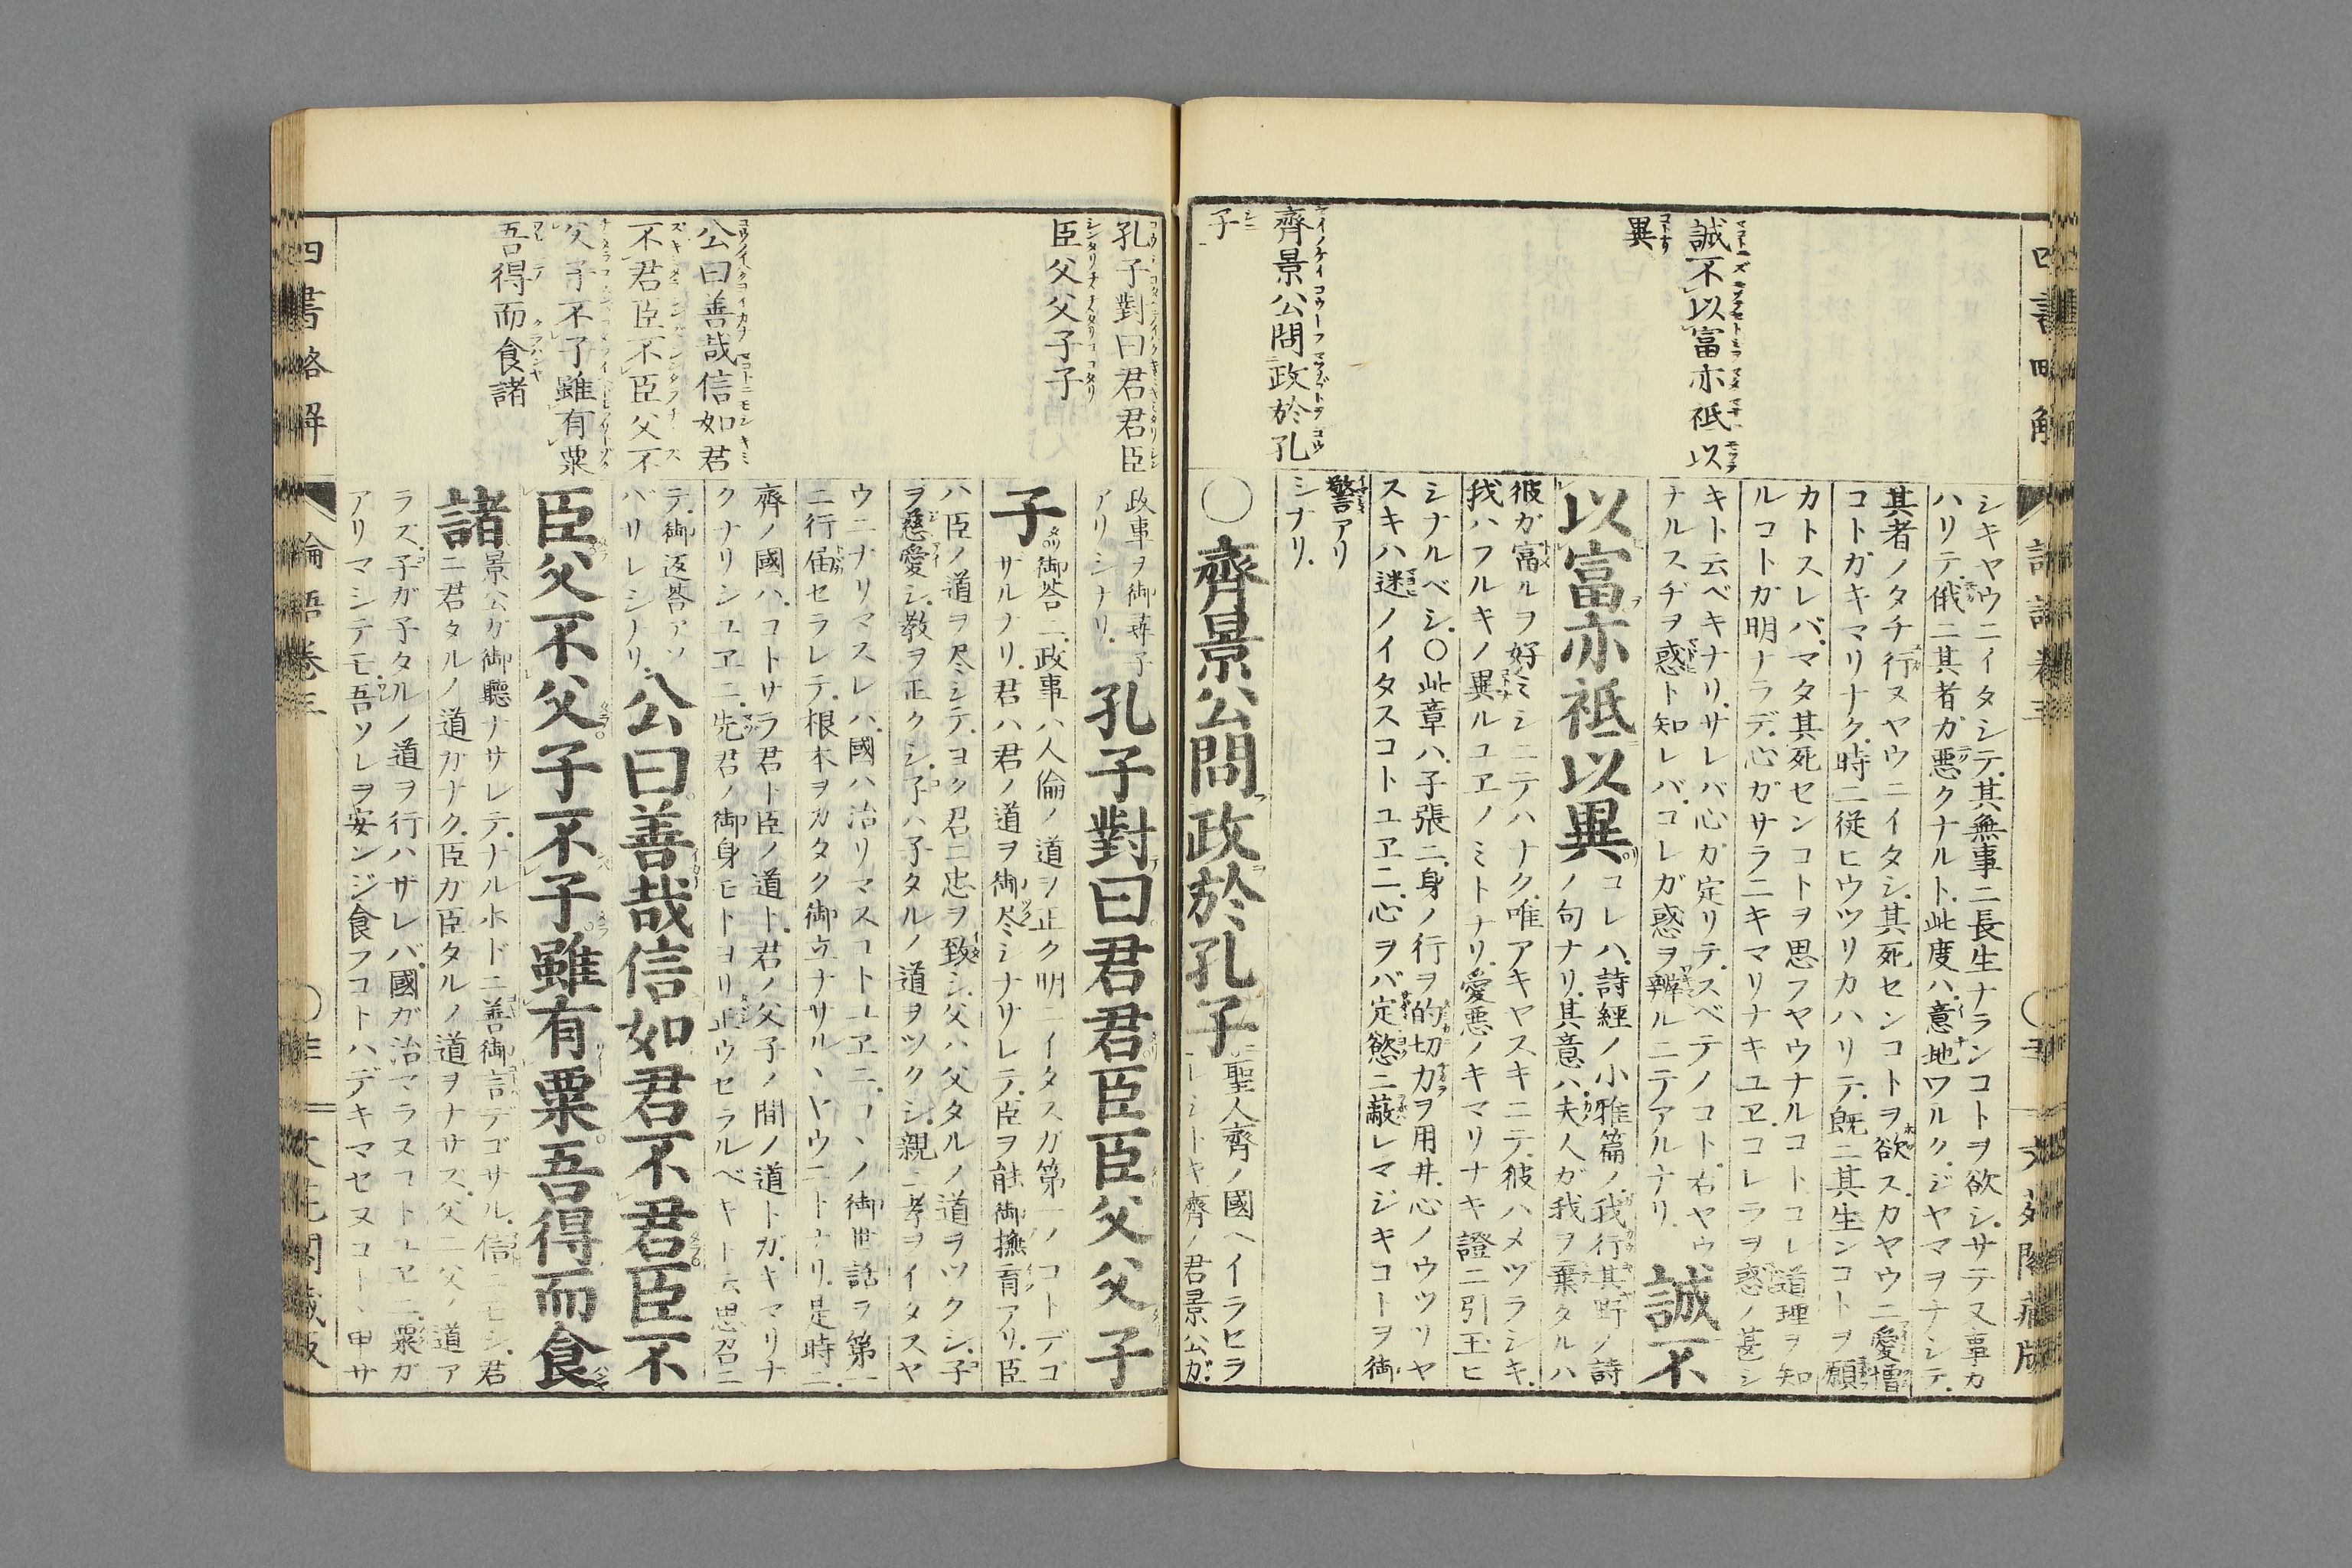 誠不以富亦祗以
異
齊景公問政於孔
子
シキヤウニイタシテ其無事ニ長生ナランコトヲ欲シサテ又事カ
ハリテ俄ニ其者ガ悪クナルト此度ハ意地ワルクジヤマヲナシテ
其者ノタチ行ヌヤウニイタシ其死センコトヲ欲スカヤウニ愛憎
コトガキマリナク時ニ従ヒウツリカハリテ既ニ其生ンコトヲ願
カトスレバマタ其死センコトヲ思フヤウナルコトコレ道理ヲ知
ルコトガ明ナラデ心ガサラニキマリナキユヱコレラヲ惑ノ甚シ
キト云ベキナリサレバ心ガ定リテスベテノコト右ヤウ
ナルスヂヲ惑ト知レバコレガ惑ヲ辨ルニテアルナリ
誠不
以富亦祗以異
コレハ詩經ノ小雅篇ノ我行其野ノ詩
ノ句ナリ其意ハ夫人ガ我ヲ棄タルハ
彼ガ富ルヲ好ミシニテハナク唯アキヤスキニテ彼ハメヅラシキ
我ハフルキノ異ルユヱノミトナリ愛悪ノキマリナキ證ニ引玉ヒ
シナルベシ〇此章ハ子張ニ身ノ行ヲ的切力ヲ用井心ノウツリヤ
スキハ迷ノイタスコトユヱニ心ヲバ定慾ニ蔽レマジキコトヲ御
警アリ
シナリ
〇齊景公問政於孔子
聖人齊ノ國ヘイラセラ
レシトキ齊ノ君景公ガ
孔子對曰君君臣
臣父父子子
公曰善哉信如君
不君臣不臣父不
父子不子雖有粟
吾得而食諸
政事ヲ御尋子
アリシナリ
孔子對曰君君臣臣父父子
子
御答ニ政事ハ人倫ノ道ヲ正ク明ニイタスガ第一ノコトデゴ
ザルナリ君ハ君ノ道ヲ御尽シナサレテ臣ヲ能御撫育アリ臣
ハ臣ノ道ヲ尽シテヨク君ニ忠ヲ致シ父ハ父タルノ道ヲツクシ子
ヲ慈愛シ教ヲ正クシ子ハ子タルノ道ヲツクシ親ニ孝ヲイタスヤ
ウニナリマスレバ國ハ治リマスコトユヱニコヽノ御世話ヲ第一
ニ行届セラレテ根本ヲカタク御立ナサルヽヤウニトナリ是時ニ
齊ノ國ハコトサラ君ト臣ノ道ト君ノ父子ノ間ノ道トガキマリナ
クナリシユヱニ先君ノ御身モトヨリ正ウセラルベキト云思召ニ
テ御返答アソ
バサレシナリ
公曰善哉信如君不君臣不
臣父不父子不子雖有粟吾得而食
諸
景公ガ御聽ナサレテナルホドニ善御言デゴサル信ニモシ君
ニ君タルノ道ガナク臣ガ臣タルノ道ヲナサズ父ニ父ノ道ア
ラズ子ガ子タルノ道ヲ行ハザレバ國ガ治マラヌコトユヱニ粟ガ
アリマシテモ吾ソレヲ安ンジ食フコトハデキマセヌコトヽ申サ
四書略解
論語卷三